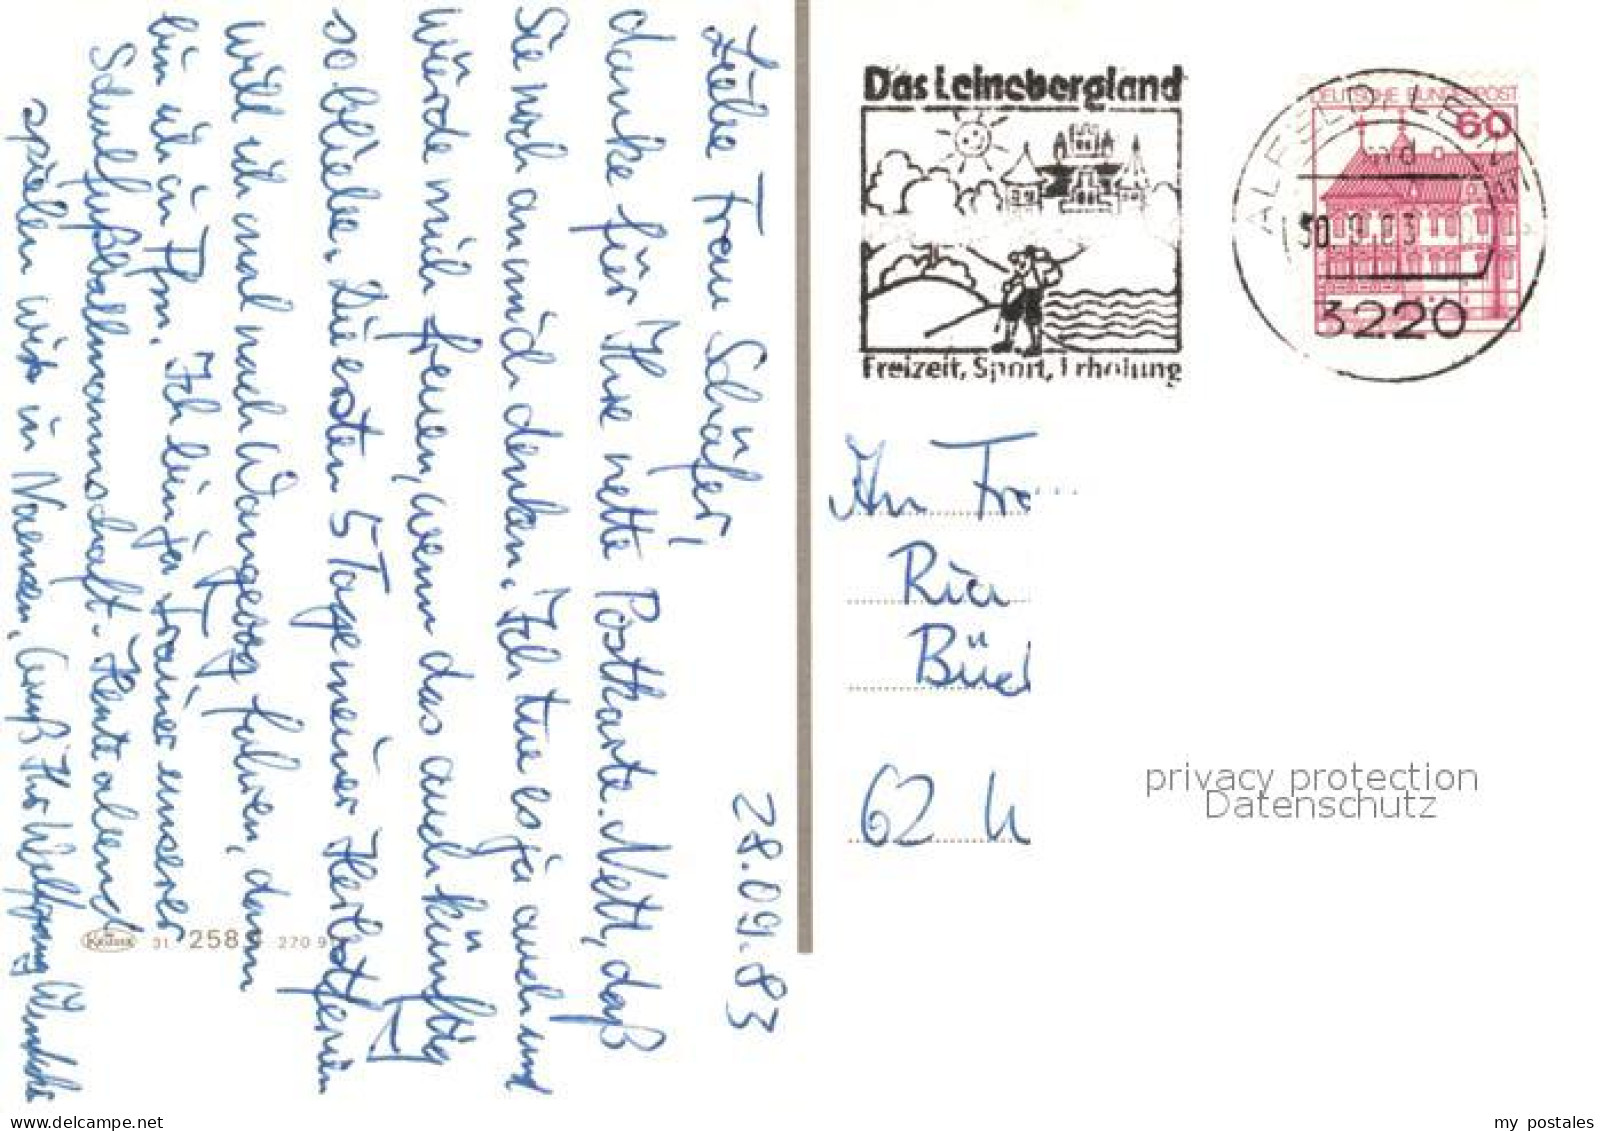 28.09.83
Liebe Frau Schäfer,
danke für Ihre nette Postkarte. Nett, daß
Sie noch an mich denken. Ich tue es ja auch und
würde mich freuen, wenn das auch künftig
so bliebe. Die ersten 5 Tage meiner Herbstferien
will ich mal nach Wangeroog fahren, dann
bin ich in
Ich bin ja Trainer unserer
Schulfußballmannschaft. Heute abend
spielen wir in Gruß Ihr Wolfgang
Krüger 31 258 270 9
Das Leinebergland
Freizeit, Sport, Erholung
DEUTSCHE BUNDESPOST
60
ALFELD, LEINE
30.9.83
3220
An Fr
Ria
Büd
62 W
privacy protection
Datenschutz
my postales
www.delcampe.net